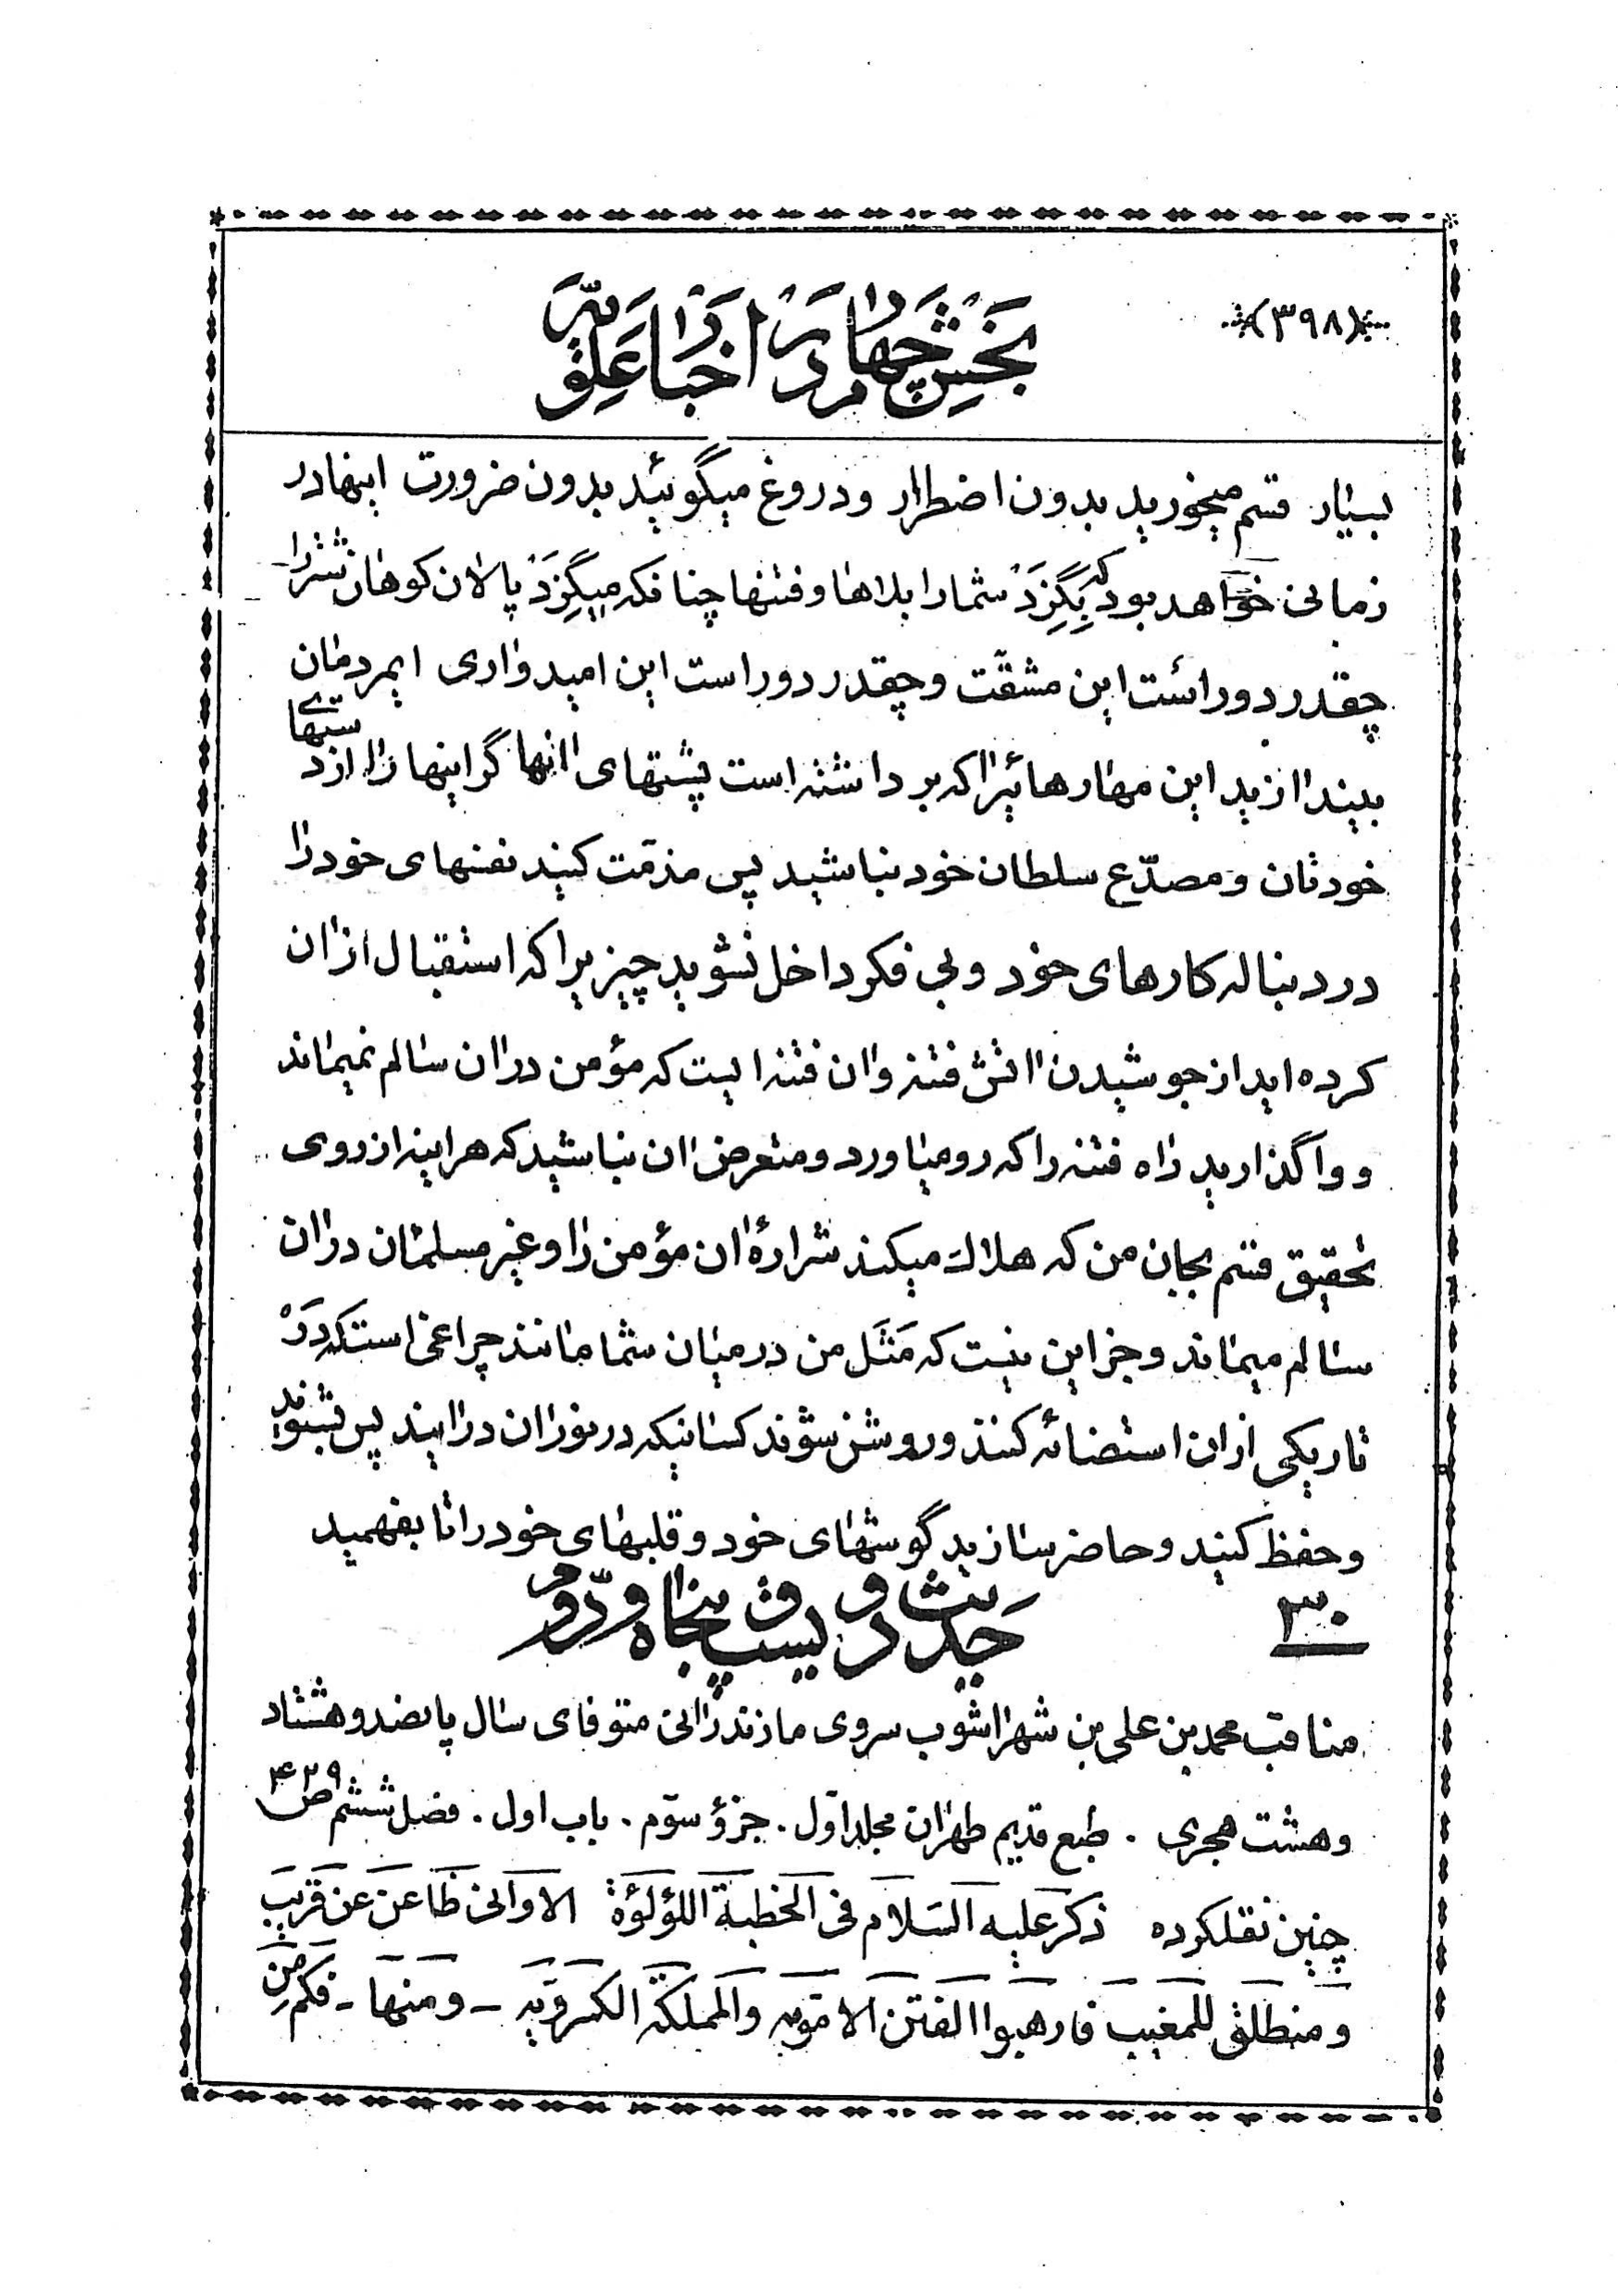 (۳۹۸)
بخش چهارم در اخبار علویّه
بسیار قسم میخورید بدون اضطرار و دروغ میگوئید بدون ضرورت اینها در
زمانی خواهد بود که بِگِزَدْ شما را بلاها و فتنها چنانکه میگِزَدْ پالان کوهان شتر را
چقدر دور است این مشقّت و چقدر دور است این امیدواری ایمردمان
بیندازید این مهارهائیرا که برداشته است پشتهای آنها گرانیها را از دستهای
خودتان و مصدّع سلطان خود نباشید پس مذمّت کنید نفسهای خود را
در دنباله کارهای خود و بی فکر داخل نشوید چیزیرا که استقبال از آن
کرده اید از جوشیدن آتش فتنه و آن فتنه ایست که مؤمن در آن سالم نمیماند
و واگذارید راه فتنه را که رو میآورد و متعرض آن نباشید که هراینه از روی
تحقیق قسم بجان من که هلاک میکند شرارهٔ آن مؤمن را و غیر مسلمان در آن
سالم میماند و جز این نیست که مَثَل من در میان شما مانند چراغی استکه دَرْ
تاریکی از آن استضائه کنند و روشن شوند کسانیکه در نور آن درآیند پس بشنوید
و حفظ کنید و حاضر سازید گوشهای خود و قلبهای خود را تا بفهمید
۳۰ حدیث دویست و پنجاه و دوّم
مناقب محمد بن علی بن شهراشوب سروی مازندرانی متوفای سال پانصد و هشتاد
و هشت هجری . طبع قدیم طهران مجلد اوّل . جزؤ سوّم . باب اول . فصل ششم ص ۴۲۹
چنین نقلکرده ذکر علیه السّلام فی الخطبة اللؤلؤة الا و انی ظاعن عن قریب
و منطلق للمغیب فارهبوا الفتن الامویه و المملکة الکسرویه - و منها - فکم من